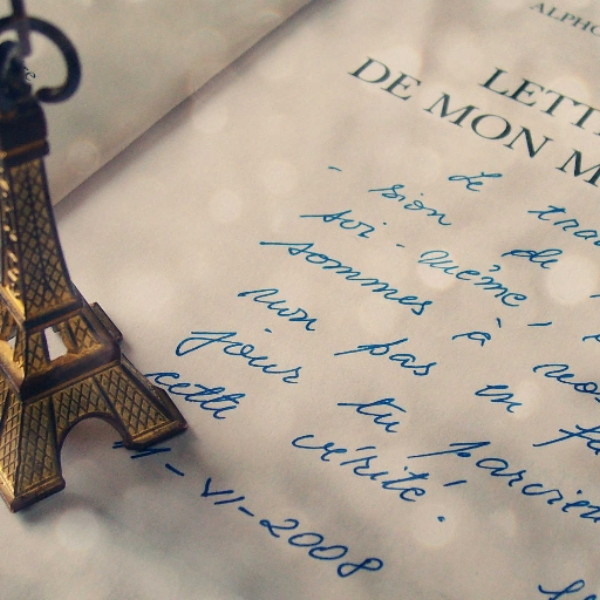 ALPHO
LETT
DE MON M
Le trav
- sion de
soi-même,
sommes à nos
non pas en fa
jour tu parvien
cette vérité.
11-VI-2008